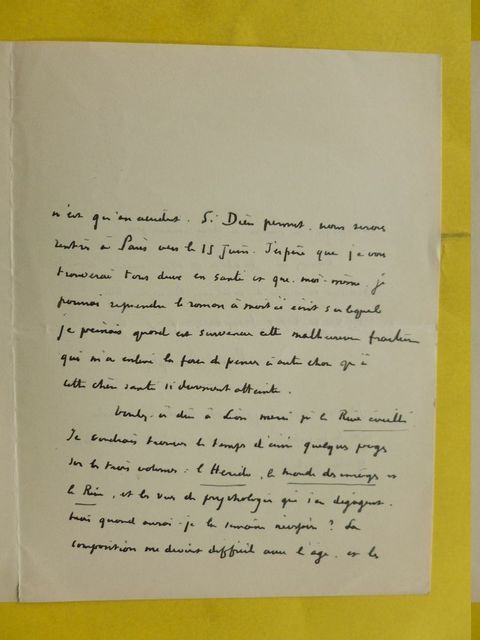 n'est qu'un accident. Si Dieu permet, nous serons
rentrés à Paris vers le 15 juin. J'espère que je vous
trouverai tous deux en santé et que, moi-même, je
pourrai reprendre le roman à moitié écrit sur lequel
je peinais quand est survenue cette malheureuse fracture
qui m'a enlevé la force de penser à autre chose qu'à
cette chère santé si durement atteinte.
Voulez- dire à Léon merci pr le Rêve éveillé
Je voudrais trouver le temps d'écrire quelques pages
sur les trois volumes : l'Hérédo, le monde des images et
le Rêve, et les vues de psychologie qui s'en dégagent.
Mais quand aurai-je la semaine nécessaire ? La
composition me devient difficile avec l'âge, et les